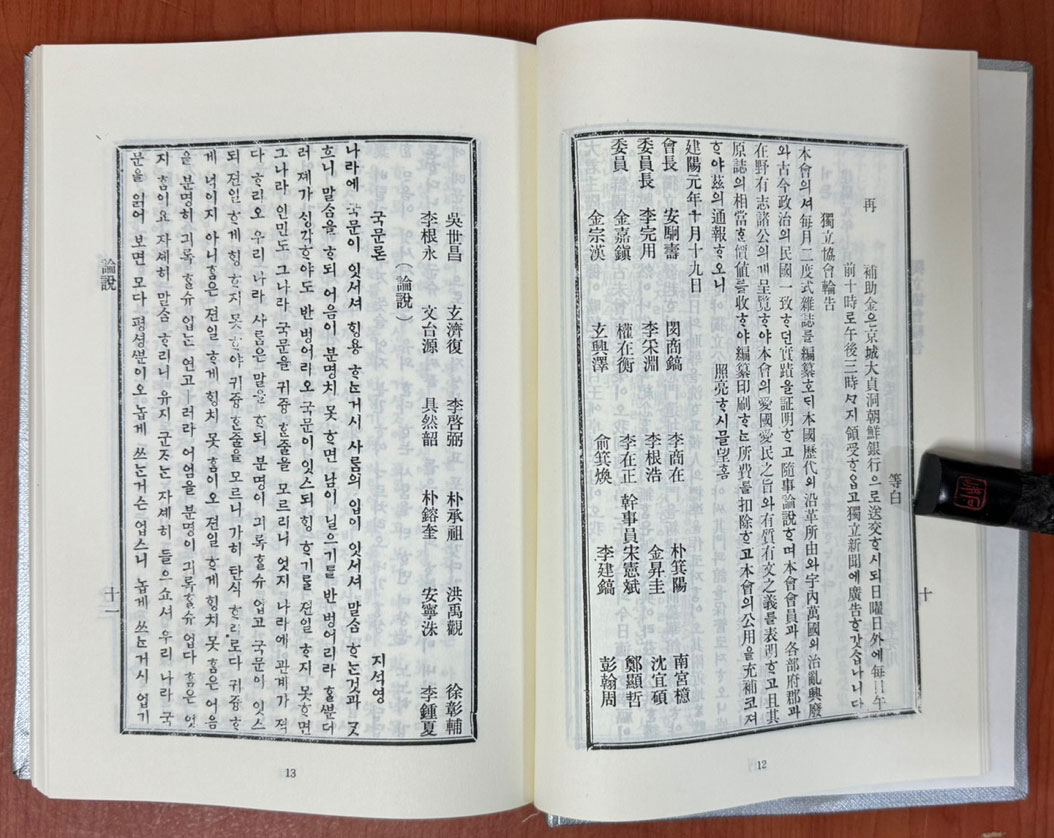 等白
再 補助金은京城大貞洞朝鮮銀行으로送交ᄒᆞ시되日曜日外에每日午
前十時로午後三時ᄭᆞ지領受ᄒᆞ압고獨立新聞에廣告ᄒᆞ갓삽ᄂᆞ니다
獨立協會輪告
本會의셔每月二度式雜誌를編纂ᄒᆞ되本國歷代의沿革所由와宇內萬國의治亂興廢
와古今政治의民國一致ᄒᆞ던實蹟을証明ᄒᆞ고隨事論說ᄒᆞ며本會會員과各部府郡과
在野有志諸公의게呈覽ᄒᆞ야本會의愛國愛民之旨와有質有文之義를表明ᄒᆞ고且其
原誌의相當ᄒᆞᆫ價値를收ᄒᆞ야編纂印刷ᄒᆞᄂᆞᆫ所費를扣除ᄒᆞ고本會의公用을充補코져
ᄒᆞ야玆의通報ᄒᆞ오니 照亮ᄒᆞ시믈望홈
建陽元年十月十九日
會長 安駉壽 閔商鎬 李商在 朴箕陽 南宮檍
委員長 李完用 李采淵 李根浩 金昇圭 沈宜碩
委員 金嘉鎮 權在衡 李在正 幹事員宋憲斌 鄭顯哲
金宗漢 玄興澤 兪箕煥 李建鎬 彭翰周
十
12
吳世昌 玄濟復 李啓弼 朴承祖 洪禹觀 徐彰輔
李根永 文台源 具然韶 朴鎔奎 安寧洙 李鍾夏
(論說)
국문론 지석영
나라에 국문이 잇셔셔 ᄒᆡᆼ용 ᄒᆞᄂᆞᆫ거시 사ᄅᆞᆷ의 입이 잇셔셔 말ᄉᆞᆷ ᄒᆞᄂᆞᆫ것과 ᄀᆞᆺ
흐니 말ᄉᆞᆷ을 ᄒᆞ되 어음이 분명치 못 ᄒᆞ면 남이 닐으기를 반벙어리라 ᄒᆞᆯᄲᅮᆫ더
러 졔가 ᄉᆡᆼ각ᄒᆞ야도 반벙어리오 국문이 잇스되 ᄒᆡᆼ ᄒᆞ기를 젼일 ᄒᆞ지 못ᄒᆞ면
그나라 인민도 그나라 국문을 귀즁 ᄒᆞᆫ줄을 모르리니 엇지 나라에 관계가 젹
다 ᄒᆞ리오 우리 나라 사ᄅᆞᆷ은 말을 ᄒᆞ되 분명이 긔록ᄒᆞᆯ슈 업고 국문이 잇스
되 젼일 ᄒᆞ게 ᄒᆡᆼ ᄒᆞ지 못 ᄒᆞ야 귀즁 ᄒᆞᆫ줄을 모르니 가히 탄식 ᄒᆞ리로다 귀즁 ᄒᆞ
게 넉이지 아니홈은 젼일 ᄒᆞ게 ᄒᆡᆼ치 못 홈이오 젼일 ᄒᆞ게 ᄒᆡᆼ치 못 홈은 어음
을 분명히 긔록 ᄒᆞᆯ슈 업ᄂᆞᆫ 연고 ㅣ러라 어음을 분명이 긔록ᄒᆞᆯ슈 업다 홈은 엇
지 홈이요 자셰히 말ᄉᆞᆷ ᄒᆞ리니 유지 군ᄌᆞᄂᆞᆫ 자셰히 들으쇼셔 우리 나라 국
문을 읽어 보면 모다 평셩ᄲᅮᆫ이오 놉게 쓰ᄂᆞᆫ거슨 업스니 놉게 쓰ᄂᆞᆫ거시 업기
論說
十一
13